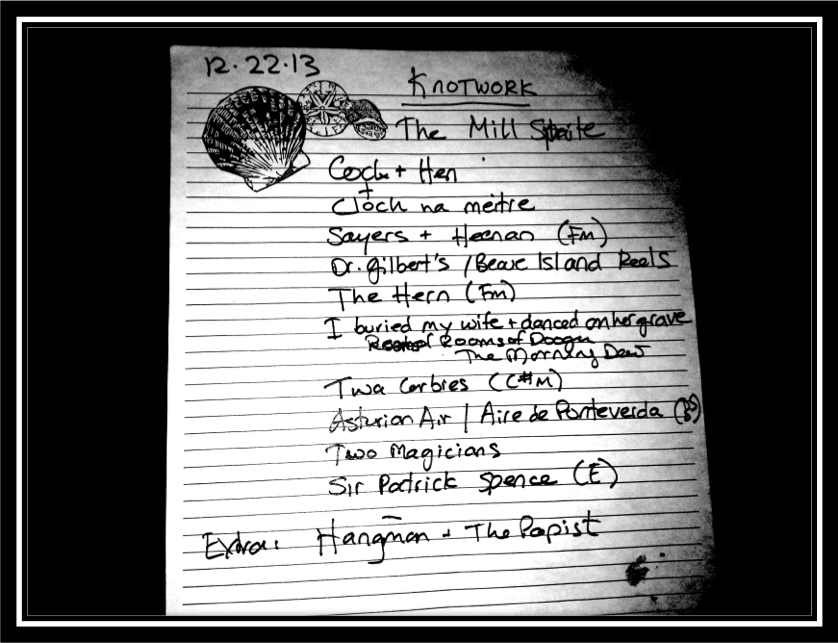 12.22.13
KNOTWORK
The Mill Sprite
Cock + Hen
+
Cloch na meitre
Sayers + Heenan (Fm)
Dr. Gilbert's / Beave Island Reels
The Hern (Fm)
I buried my wife + danced on her grave
Rooms of Doogh
The Morning Dew
Twa Corbies (C#m)
Asturion Air / Aire de Ponteverda
Two Magicians
Sir Patrick Spence (E)
Extra: Hangman + The Papist